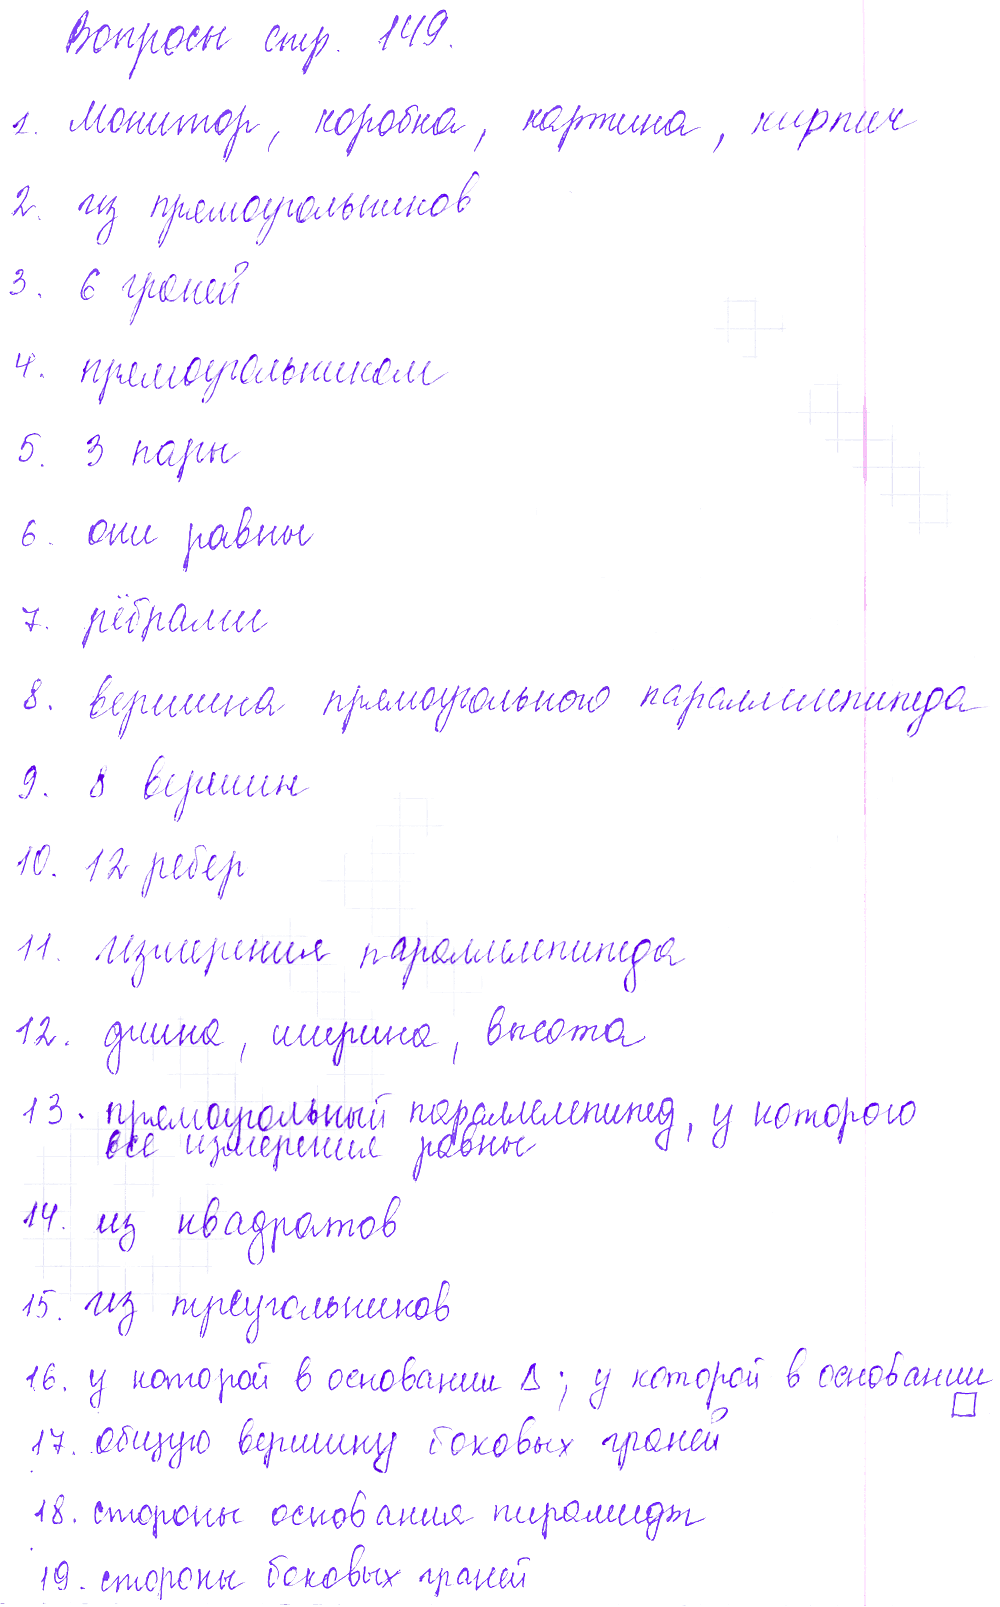 Вопросы стр. 149.
1. Монитор, коробка, картина, кирпич
2. из прямоугольников
3. 6 граней
4. прямоугольником
5. 3 пары
6. они равны
7. рёбрами
8. вершина прямоугольного параллелепипеда
9. 8 вершин
10. 12 ребер
11. измерения параллелепипеда
12. длина, ширина, высота
13. прямоугольный параллелепипед, у которого
все измерения равны
14. из квадратов
15. из треугольников
16. у которой в основании Δ; у которой в основании □
17. общую вершину боковых граней
18. стороны основания пирамиды
19. стороны боковых граней